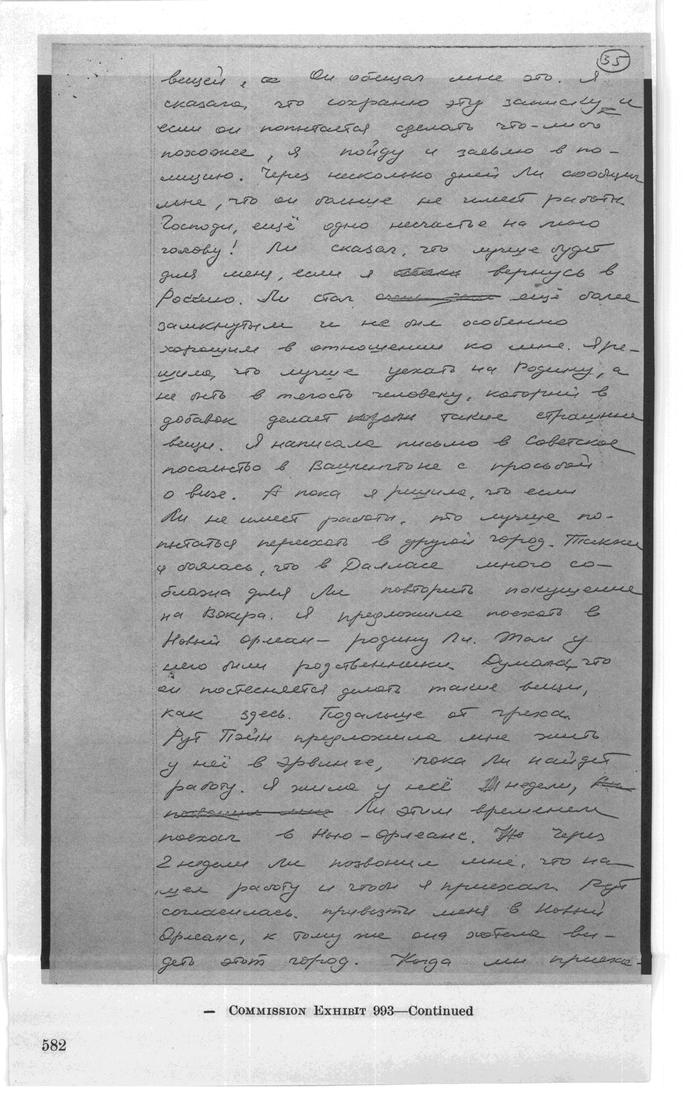 35
вещей, Он обещал мне это. Я
сказала, что сохраню эту записку и
если он попытается сделать что-либо
похожее, я пойду и заявлю в по-
лицию. Через несколько дней Ли сообщил
мне, что он больше не имеет работы.
Господи, ещё одно несчастье на мою
голову! Ли сказал, что лучше будет
для меня, если я вернусь в
Россию. Ли стал ещё более
замкнутым и не был особенно
хорошим в отношении ко мне. Я ре-
шила, что лучше уехать на Родину, а
не быть в тягость человеку, который в
добавок делает такие страшные
вещи. Я написала письмо в Советское
посольство в Вашингтоне с просьбой
о визе. А пока я решила, что если
Ли не имеет работы, то лучше по-
пытаться переехать в другой город. Также
я боялась, что в Далласе много со-
блазна для Ли повторить покушение
на Вокера. Я предложила поехать в
Новый Орлеан — родину Ли. Там у
него были родственники. Думала, что
он постесняется делать такие вещи,
как здесь. Подальше от греха.
Рут Пэйн предложила мне жить
у неё в Эрвинге, пока Ли найдёт
работу. Я жила у неё недели,
Ли этим временем
поехал в Нью-Орлеанс. Через
2 недели Ли позвонил мне, что на-
шел работу и чтобы я приехала. Рут
согласилась привезти меня в Новый
Орлеанс, к тому же она хотела ви-
деть этот город. Когда мы приеха-
— COMMISSION EXHIBIT 993—Continued
582